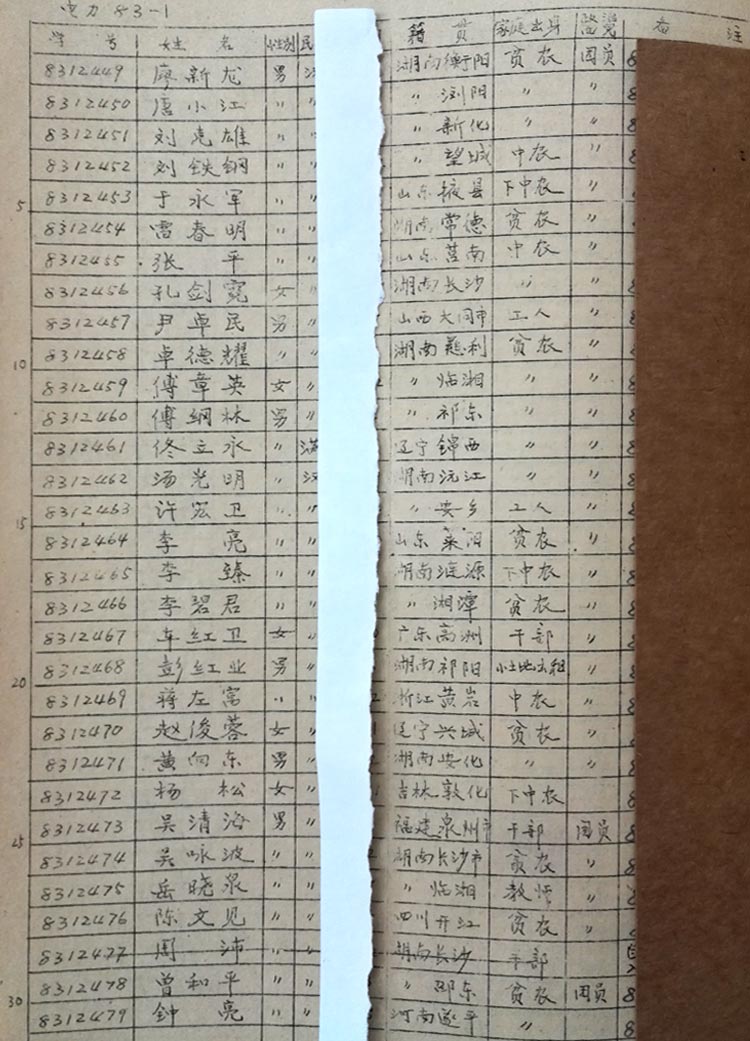 电力83-1
学号 姓名 性别 民 籍贯 家庭出身 备注
8312449 廖新龙 男 汉 湖南衡阳 贫农 团员
8312450 唐小江 〃 〃 〃 浏阳 〃 〃
8312451 刘克雄 〃 〃 〃 新化 〃 〃
8312452 刘铁钢 〃 〃 〃 望城 中农 〃
5 8312453 于永军 〃 〃 山东掖县 下中农 〃
8312454 雷春明 〃 〃 湖南常德 贫农 〃
8312455 张平 〃 〃 山东莒南 中农 〃
8312456 孔剑 女 〃 湖南长沙 〃 〃
8312457 尹卓民 男 〃 山西大同市 工人 〃
10 8312458 卓德耀 〃 〃 湖南慈利 贫农 〃
8312459 傅章英 女 〃 〃 临湘 〃 〃
8312460 傅纲林 男 〃 〃 祁东 〃 〃
8312461 佟立永 〃 满 辽宁锦西 〃 〃
8312462 汤光明 〃 汉 湖南沅江 〃 〃
15 8312463 许宏卫 〃 〃 〃 安乡 工人 〃
8312464 李亮 〃 〃 山东莱阳 贫农 〃
8312465 李臻 〃 〃 湖南涟源 下中农 〃
8312466 李碧君 〃 〃 〃 湘潭 贫农 〃
8312467 车红卫 女 〃 广东高州 干部 〃
20 8312468 彭红业 男 〃 湖南祁阳 小土地出租 〃
8312469 蒋左富 〃 〃 浙江黄岩 中农 〃
8312470 赵俊蓉 女 〃 辽宁兴城 贫农 〃
8312471 黄向东 男 〃 湖南安化 〃 〃
8312472 杨松 女 〃 吉林敦化 下中农
25 8312473 吴清海 男 〃 福建泉州市 干部 团员
8312474 吴咏波 〃 〃 湖南长沙市 贫农 〃
8312475 岳晓泉 〃 〃 〃 临湘 教师 〃
8312476 陈文见 〃 〃 四川开江 贫农 〃
8312477 周沛 〃 〃 湖南长沙 干部
30 8312478 曾和平 〃 〃 〃 邵东 贫农 团员
8312479 钟亮 〃 〃 河南遂平 〃